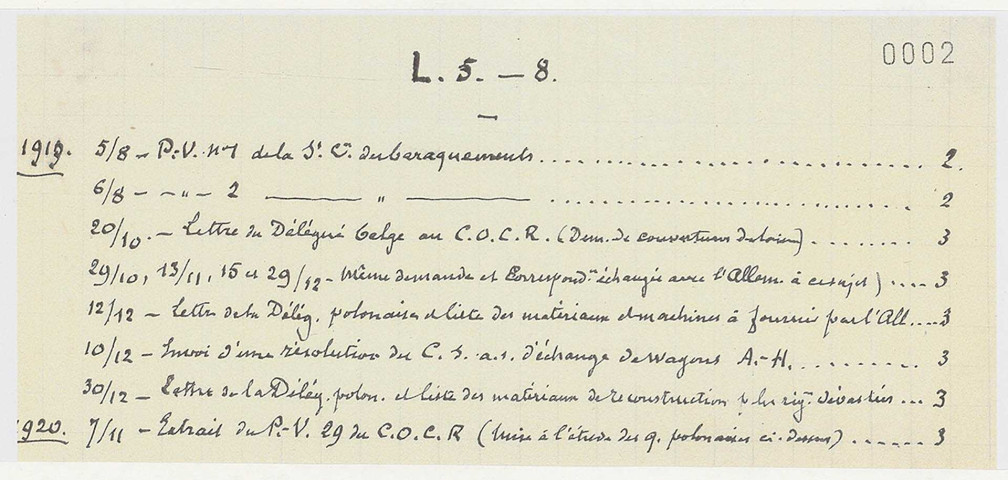 0002
L. 5. — 8.
1919. 5/8 — P.-V. n° 1 de la S/ Con des baraquements ........ 2.
6/8 — — „ — 2 —— „ —— ........ 2
20/10. — Lettre du Délégué belge au C.O.C.R. (Dem. de couvertures de laine) ........ 3
29/10, 13/11, 15 et 29/12 — Même demande et Correspond. échangée avec l'Allem. à ce sujet) .... 3
12/12 — Lettre de la Délég. polonaise et liste des matériaux et machines à fournir par l'All. .... 3
10/12 — Envoi d'une résolution du C. S. a.s. d'échange de wagons A.-H. ........ 3
30/12 — Lettre de la Délég. polon. et liste des matériaux de reconstruction p. les rég. dévastées ... 3
1920. 7/11 — Extrait du P.-V. 29 du C.O.C.R (Mise à l'étude des q. polonaises ci-dessus) ...... 3